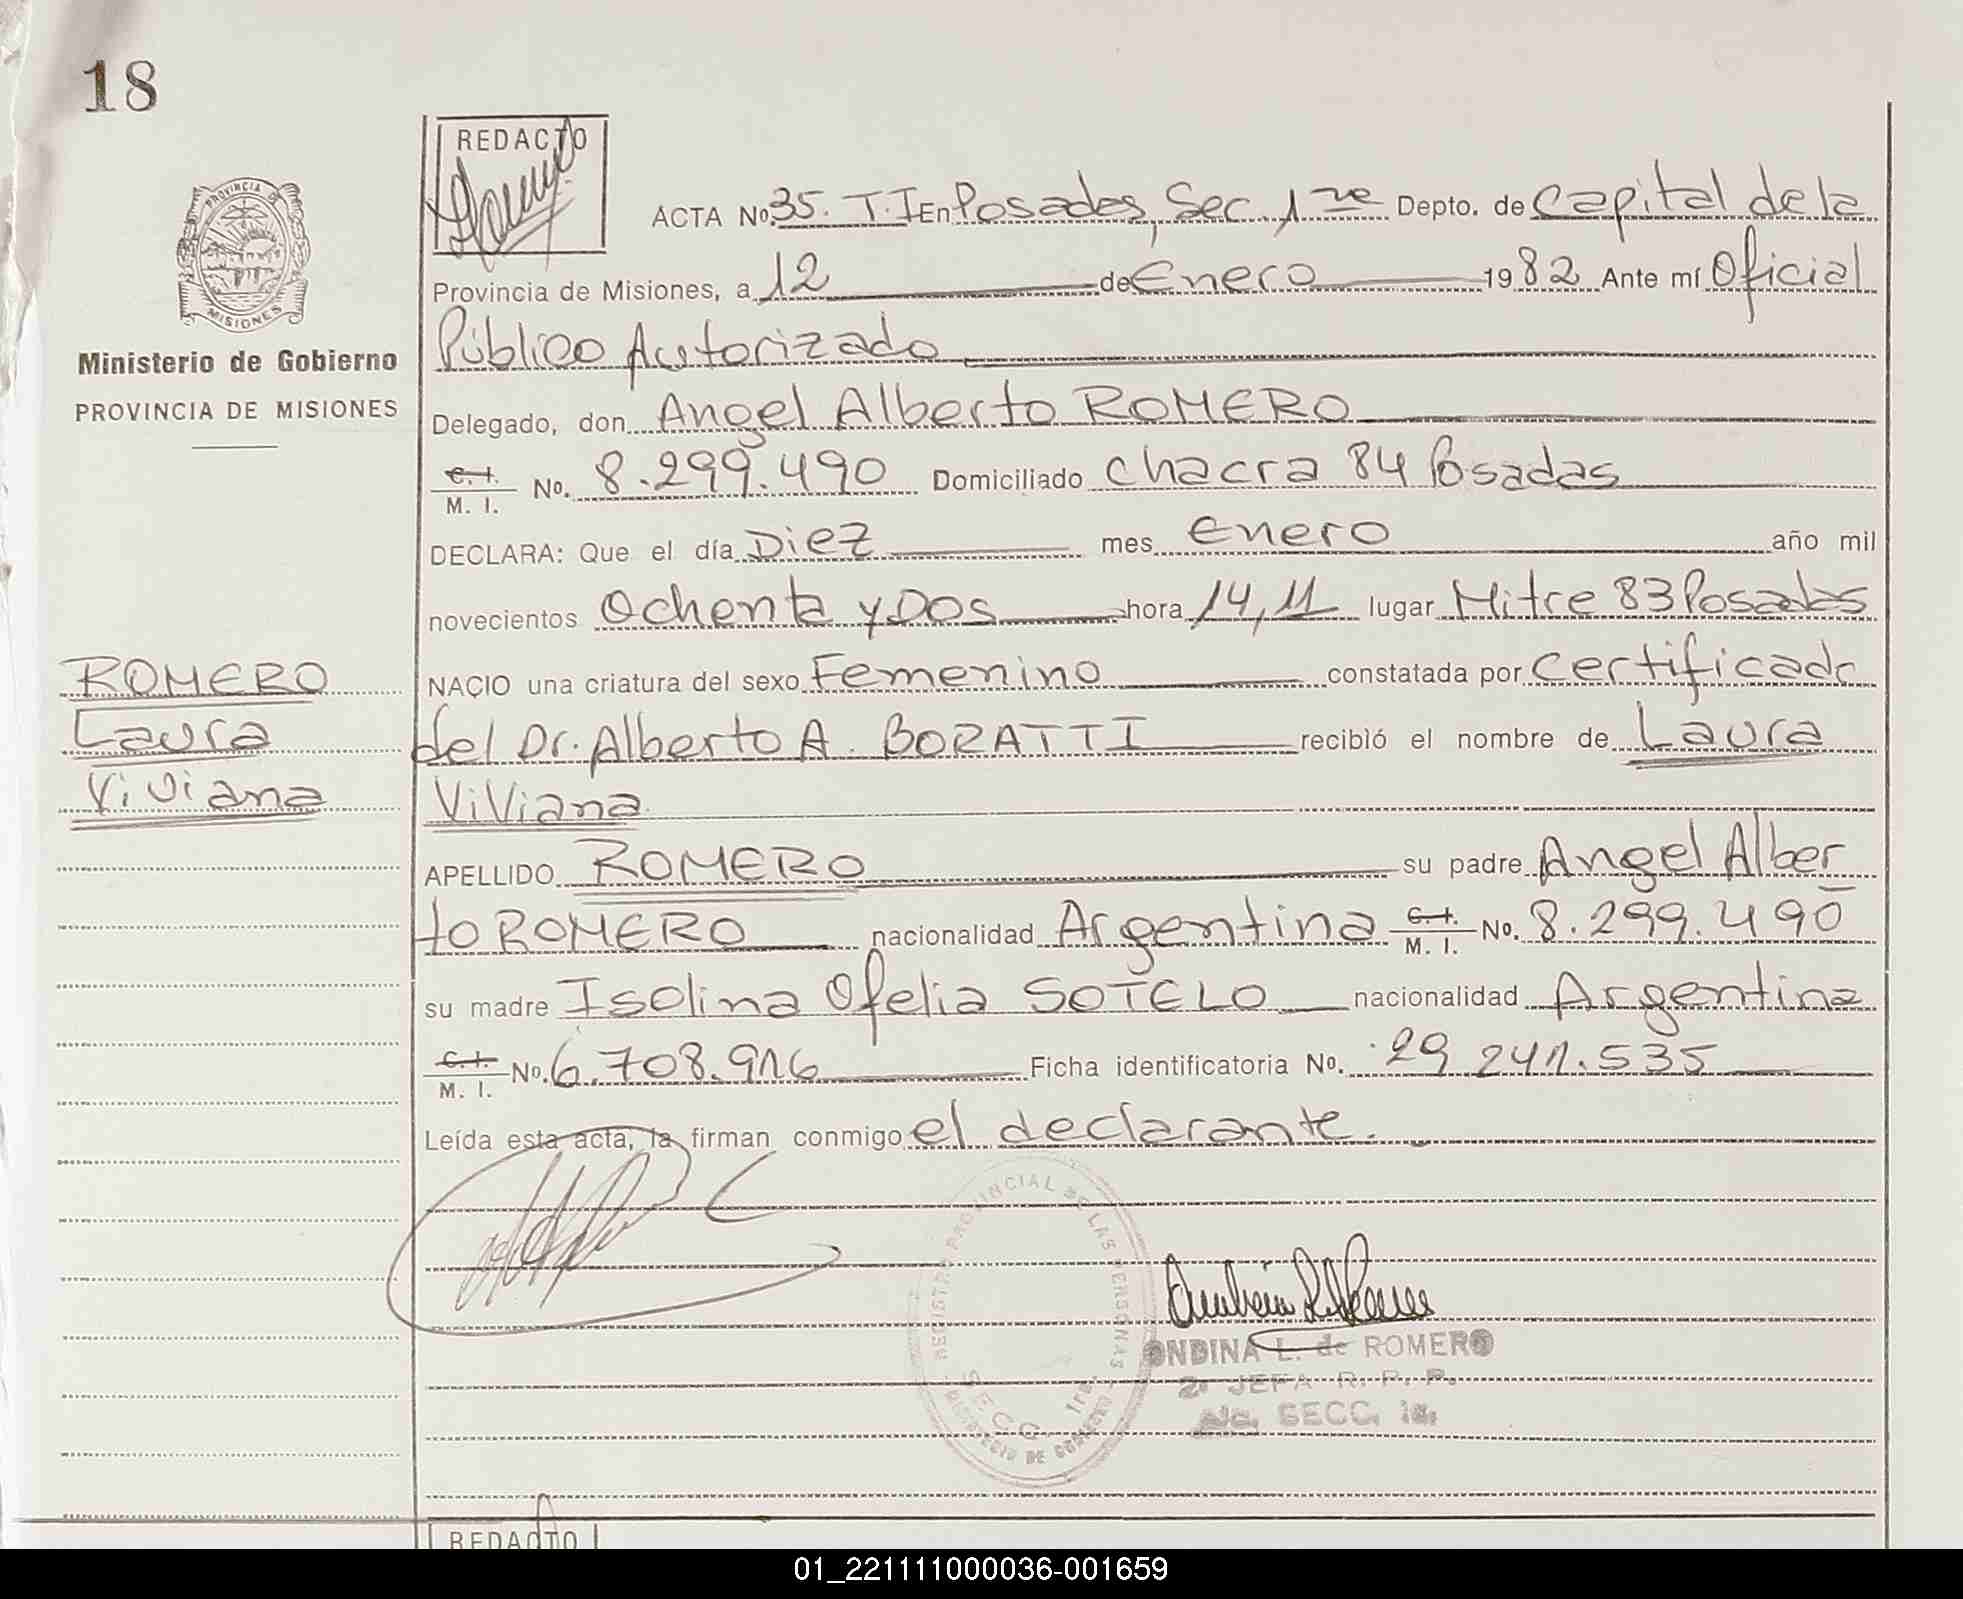 18
REDACTO
PROVINCIA DE
MISIONES
Ministerio de Gobierno
PROVINCIA DE MISIONES
ACTA No. 35. T. I En Posadas, Sec. 1 ra Depto. de Capital de la
Provincia de Misiones, a 12 de Enero 1982 Ante mí Oficial
Público Autorizado
Delegado, don Angel Alberto ROMERO
C. I.
M. I. No. 8.299.490 Domiciliado Chacra 84 Posadas
DECLARA: Que el día Diez mes Enero año mil
novecientos Ochenta y Dos hora 14,11 lugar Mitre 83 Posadas
NACIO una criatura del sexo Femenino constatada por Certificado
del Dr. Alberto A. BORATTI recibió el nombre de Laura
Viviana
ROMERO
Laura
Viviana
APELLIDO ROMERO su padre Angel Alber
to ROMERO nacionalidad Argentina C. I. M. I. No. 8.299.490
su madre Isolina Ofelia SOTELO nacionalidad Argentina
C. I.
M. I. No. 6.708.916 Ficha identificatoria No. 29 241.535
Leída esta acta, la firman conmigo el declarante.
REGISTRO PROVINCIAL DE LAS PERSONAS
SECC. 1ra.
MINISTERIO DE GOBIERNO
ONDINA L. de ROMERO
2a JEFA R. P. P.
a/c. SECC. 1a.
REDACTO
01_221111000036-001659